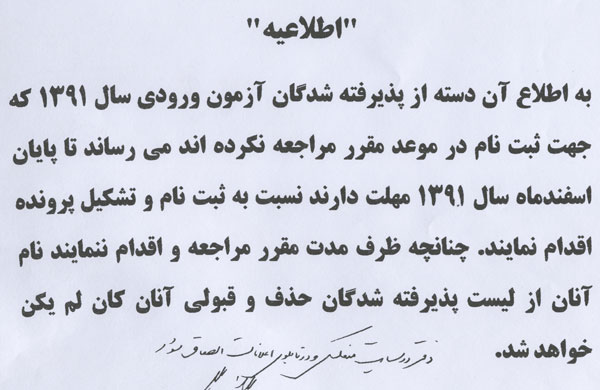 "اطلاعیه"
به اطلاع آن دسته از پذیرفته شدگان آزمون ورودی سال ۱۳۹۱ که
جهت ثبت نام در موعد مقرر مراجعه نکرده اند می رساند تا پایان
اسفندماه سال ۱۳۹۱ مهلت دارند نسبت به ثبت نام و تشکیل پرونده
اقدام نمایند. چنانچه ظرف مدت مقرر مراجعه و اقدام ننمایند نام
آنان از لیست پذیرفته شدگان حذف و قبولی آنان کان لم یکن
خواهد شد.
در سایت منعکس و در تابلوی اعلانات الصاق شود